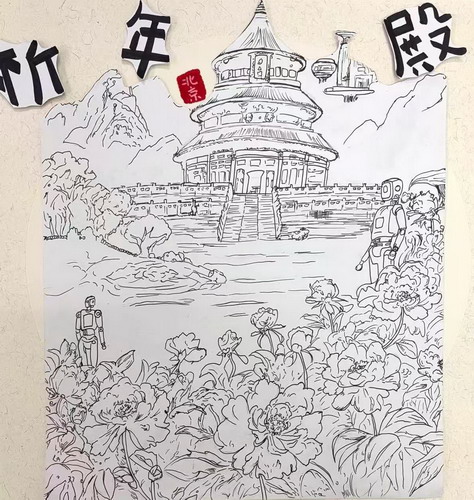 祈年殿
北京